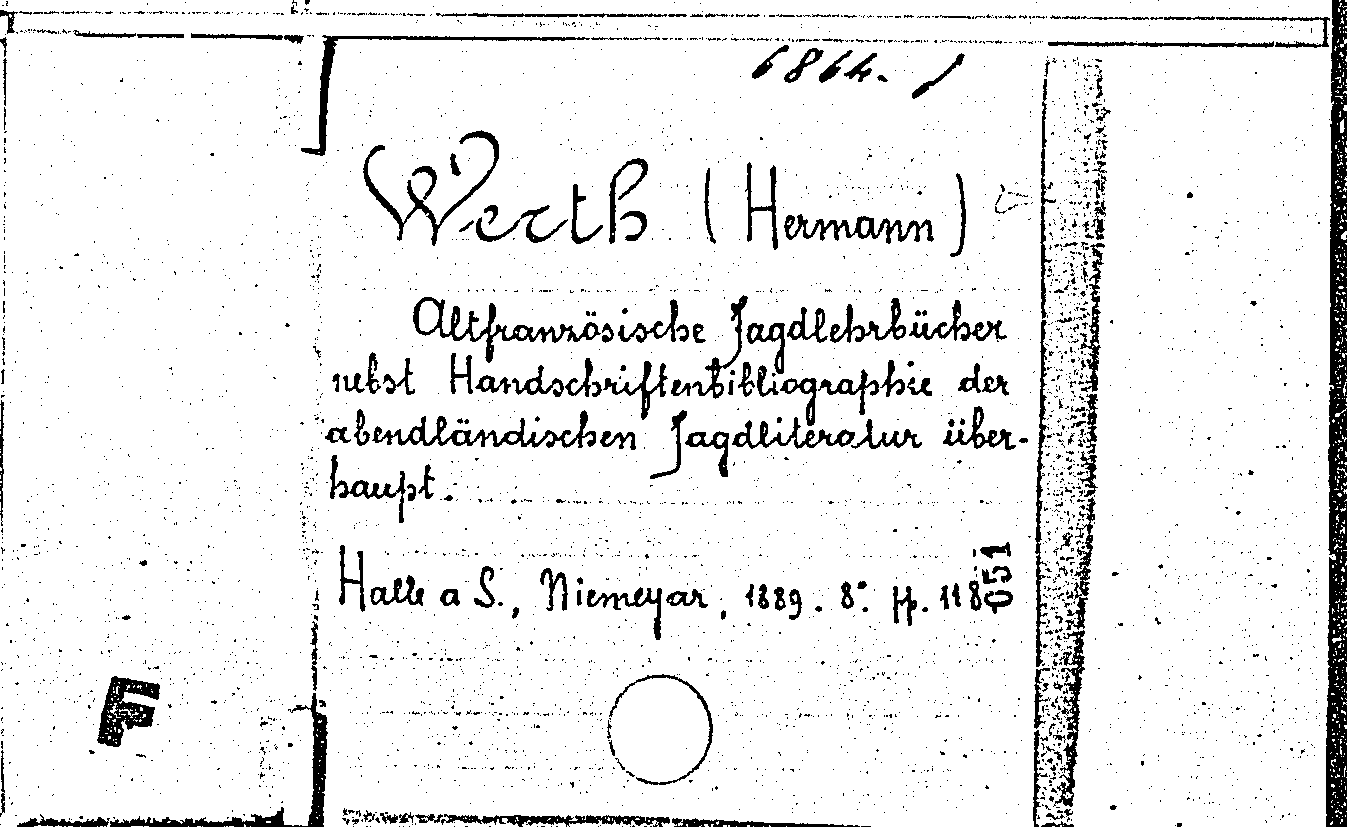 6864.
Werth (Hermann)
Altfranzösische Jagdlehrbücher
nebst Handschriftenbibliographie der
abendländischen Jagdliteratur über-
haupt.
Halle a S., Niemeyar, 1889. 8°. pp. 118
051
F